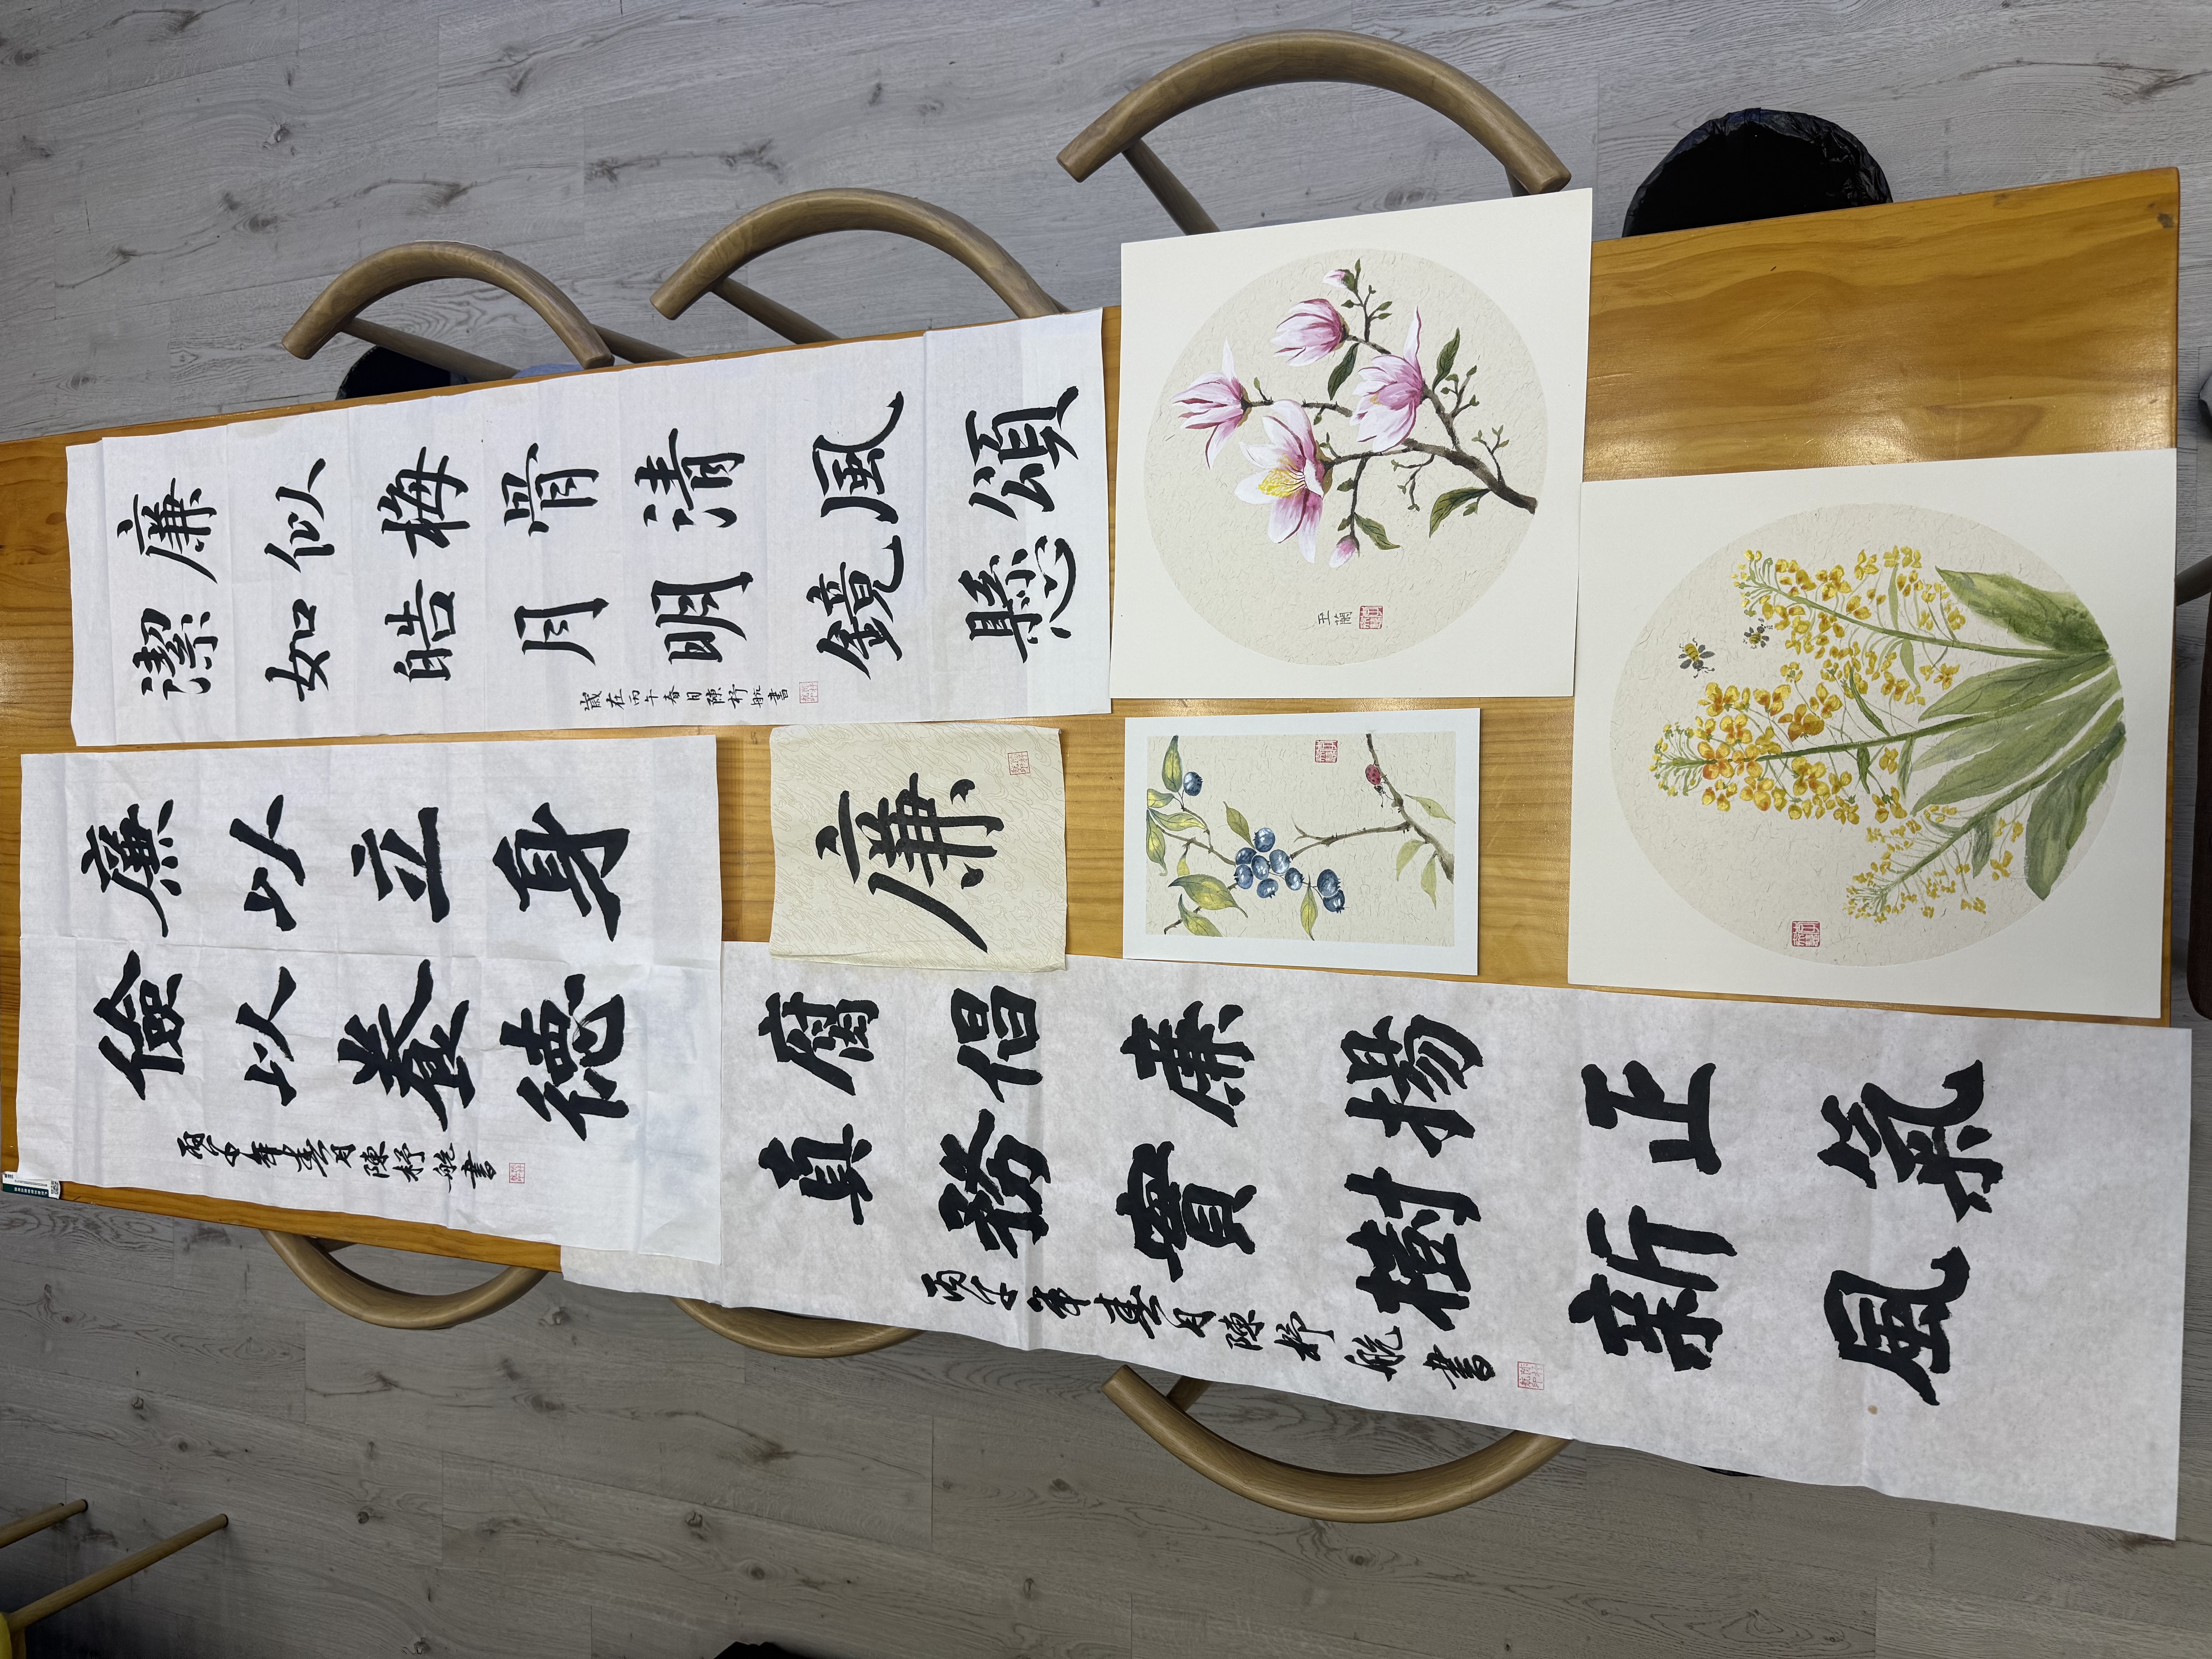 廉似梅骨清風頌
潔如皓月明鏡懸
歲在丙午春日陳杼航書
廉以立身
儉以養德
丙午年春月陳杼航書
廉
腐倡廉揚正氣
真務實樹新風
丙午年春月陳杼航書
玉蘭